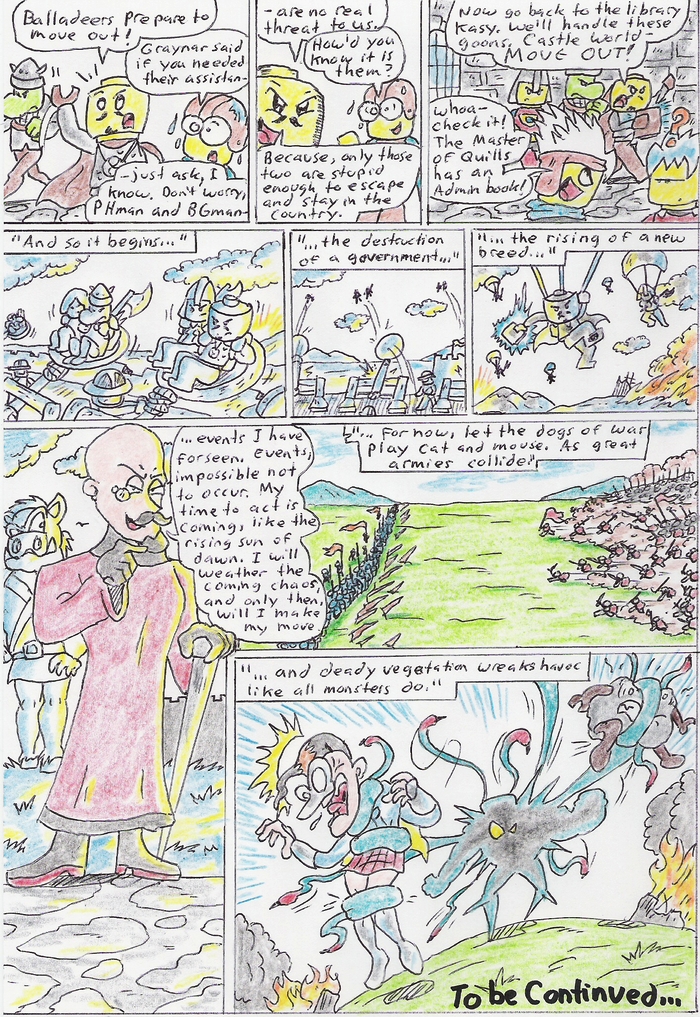 Balladeers Prepare to
move out!
Graynar said
if you needed
their assistan-
-just ask, I
know. Don't worry,
PHman and BGman
-are no real
threat to us.
How'd you
know it is
them?
Because, only those
two are stupid
enough to escape
and stay in the
country.
Now go back to the library
Kasy. We'll handle these
goons. Castle World-
MOVE OUT!
whoa-
check it!
The Master
of Quills
has an
Admin book!
"And so it begins..."
"...the destruction
of a government..."
"...the rising of a new
breed..."
...events I have
forseen. Events,
impossible not
to occur. My
time to act is
coming, like the
rising sun of
dawn. I will
weather the
coming chaos,
and only then,
will I make
my move.
"... For now, let the dogs of war
play cat and mouse. As great
armies collide!"
"... and deadly vegetation wreaks havoc
like all monsters do."
To be Continued...